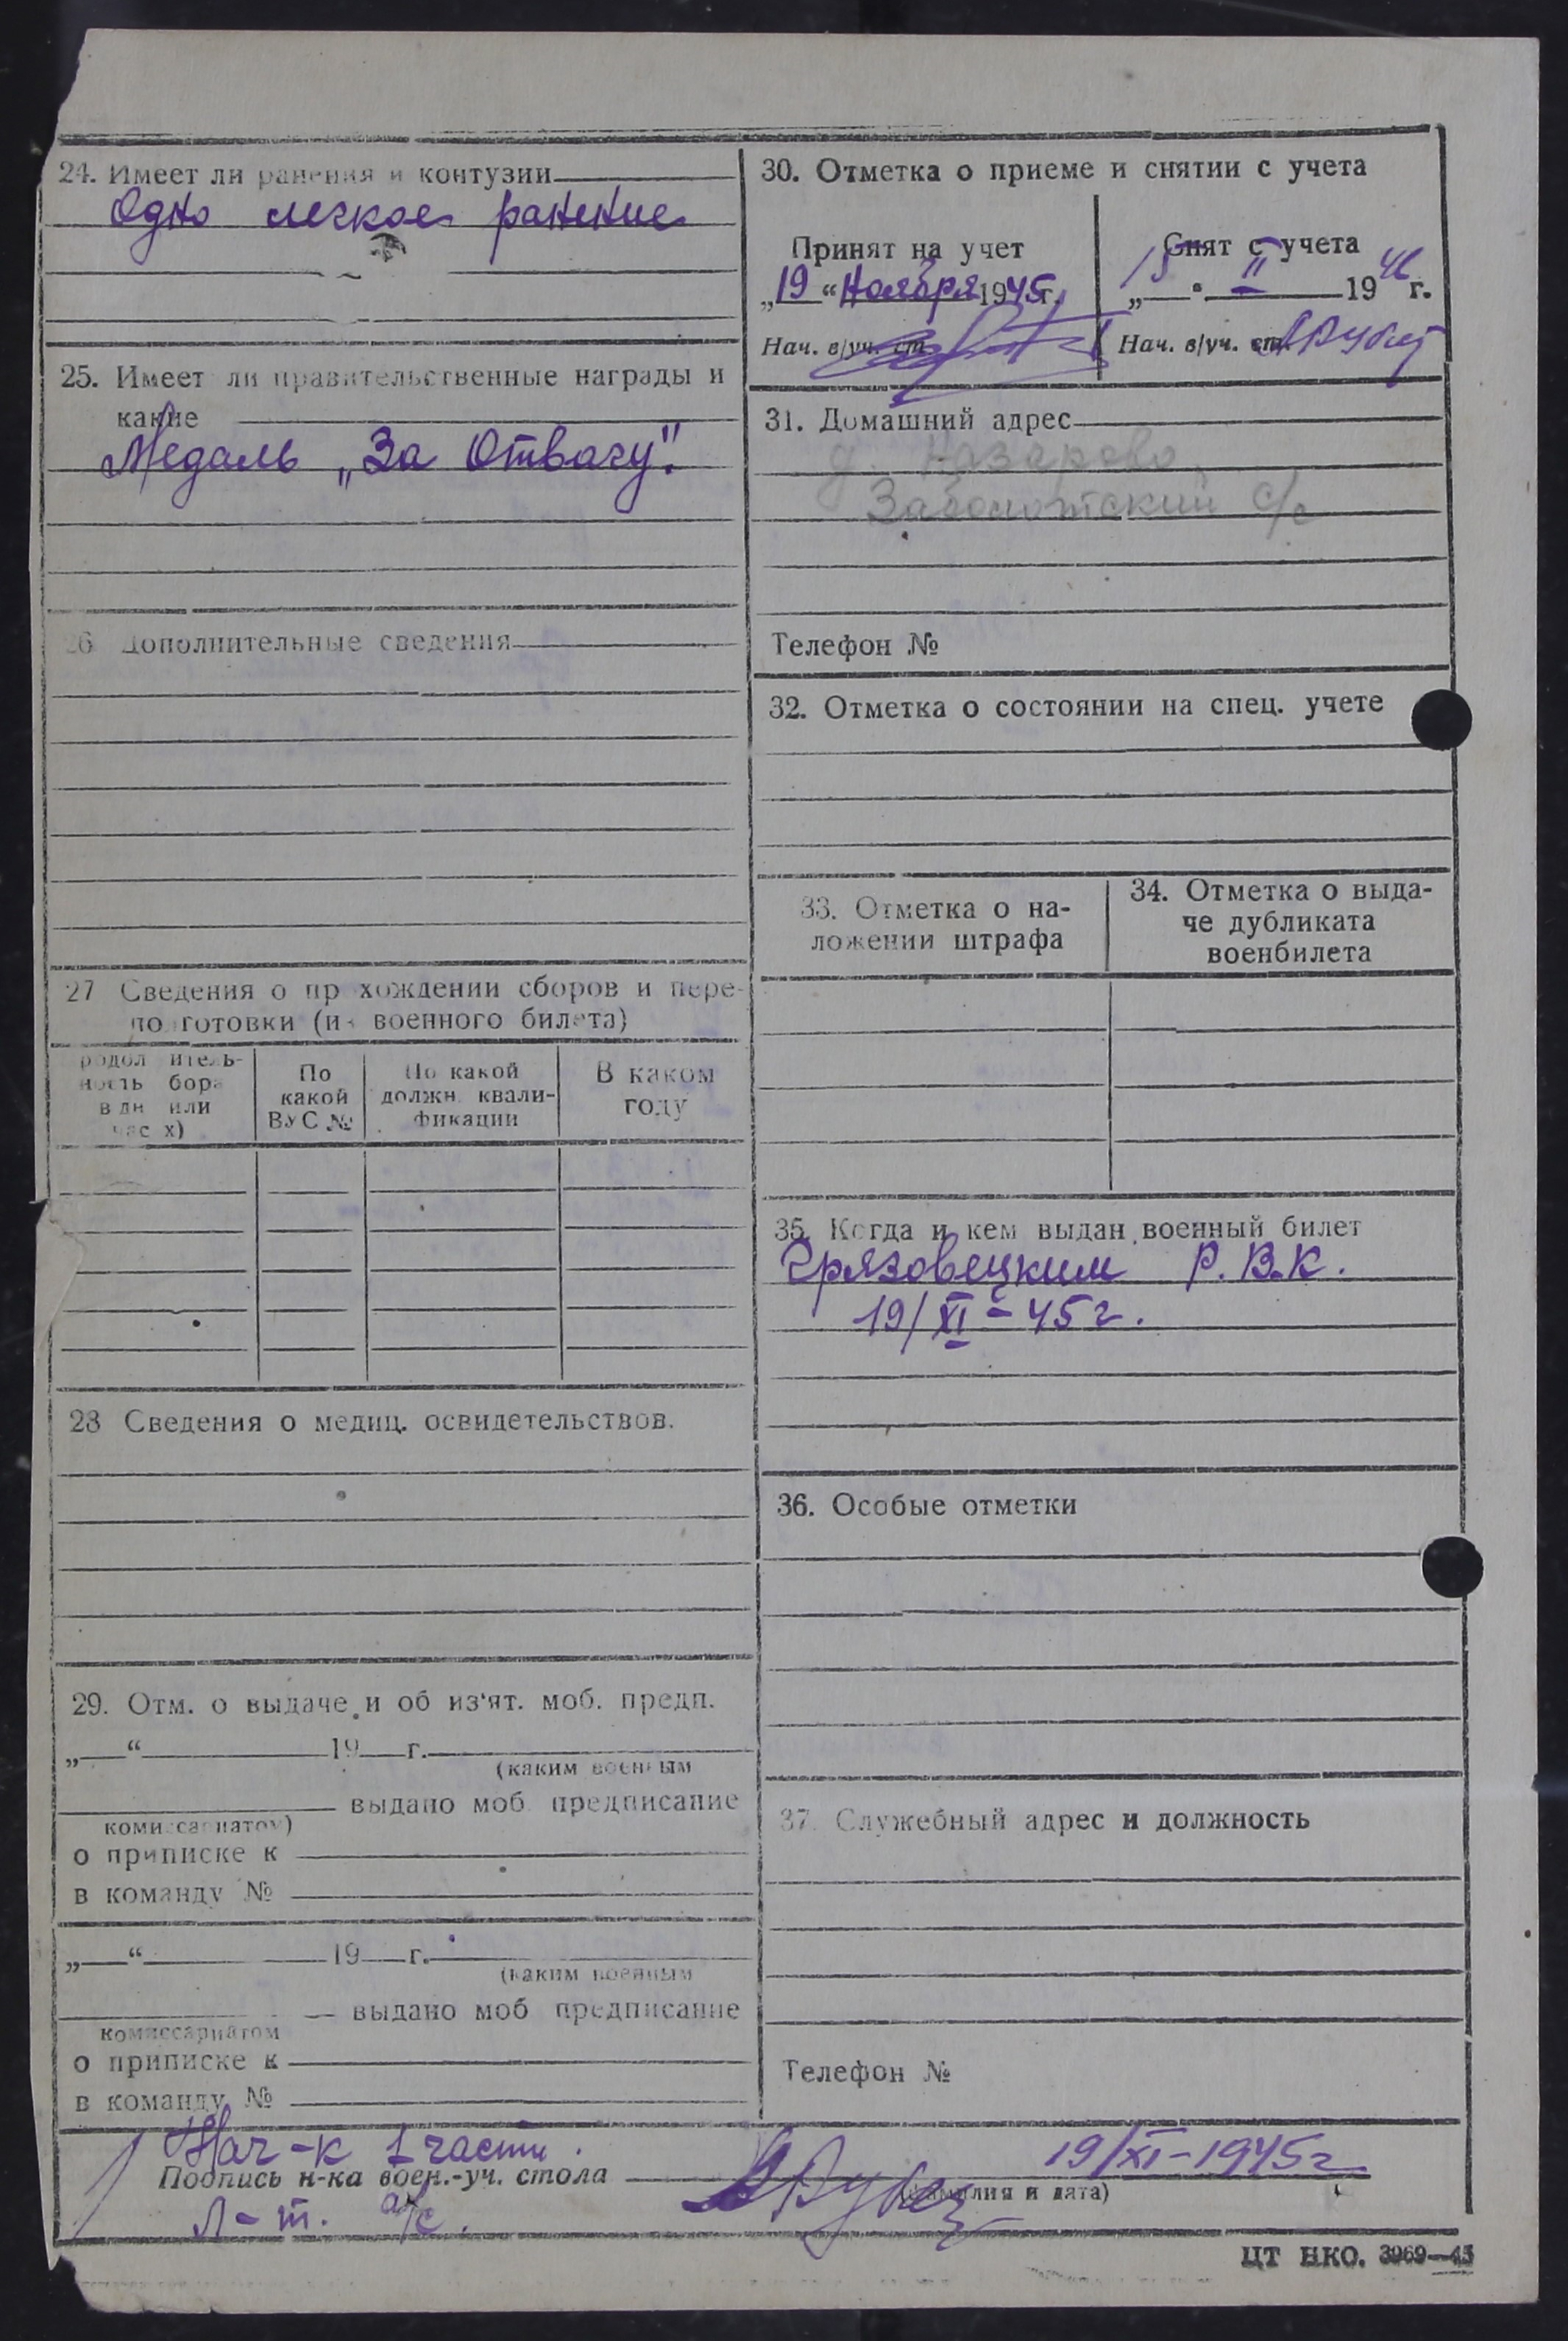 24. Имеет ли ранения и контузии
Одно легкое ранение
25. Имеет ли правительственные награды и
какие
Медаль „За Отвагу".
26 Дополнительные сведения
27 Сведения о пр хождении сборов и пере-
по готовки (и военного билета)
родол итель-
ность бора
в дн или
час х)
По
какой
ВУС №
По какой
должн. квали-
фикации
В каком
году
28 Сведения о медиц. освидетельствов.
29. Отм. о выдаче и об из'ят. моб. предп.
„ “ 19 г.
(каким военным
выдано моб. предписание
комиссариатом)
о приписке к
в команду №
„ “ 19 г.
(каким военным
выдано моб предписание
комиссариатом
о приписке к
в команду №
30. Отметка о приеме и снятии с учета
Принят на учет
„19“ Ноября 1945г.
Нач. в/уч. ст.
Снят с учета
„15“ II 1946 г.
Нач. в/уч. ст.
31. Домашний адрес
д. Назарово,
Заболотский с/с
Телефон №
32. Отметка о состоянии на спец. учете
33. Отметка о на-
ложении штрафа
34. Отметка о выда-
че дубликата
военбилета
35. Когда и кем выдан военный билет
Грязовецким Р.В.К.
19/XI-45г.
36. Особые отметки
37. Служебный адрес и должность
Телефон №
Нач-к 1 части.
Подпись н-ка воен.-уч. стола
19/XI-1945г
(фамилия и дата)
Л-т. а/с.
ЦТ НКО. 3969—45